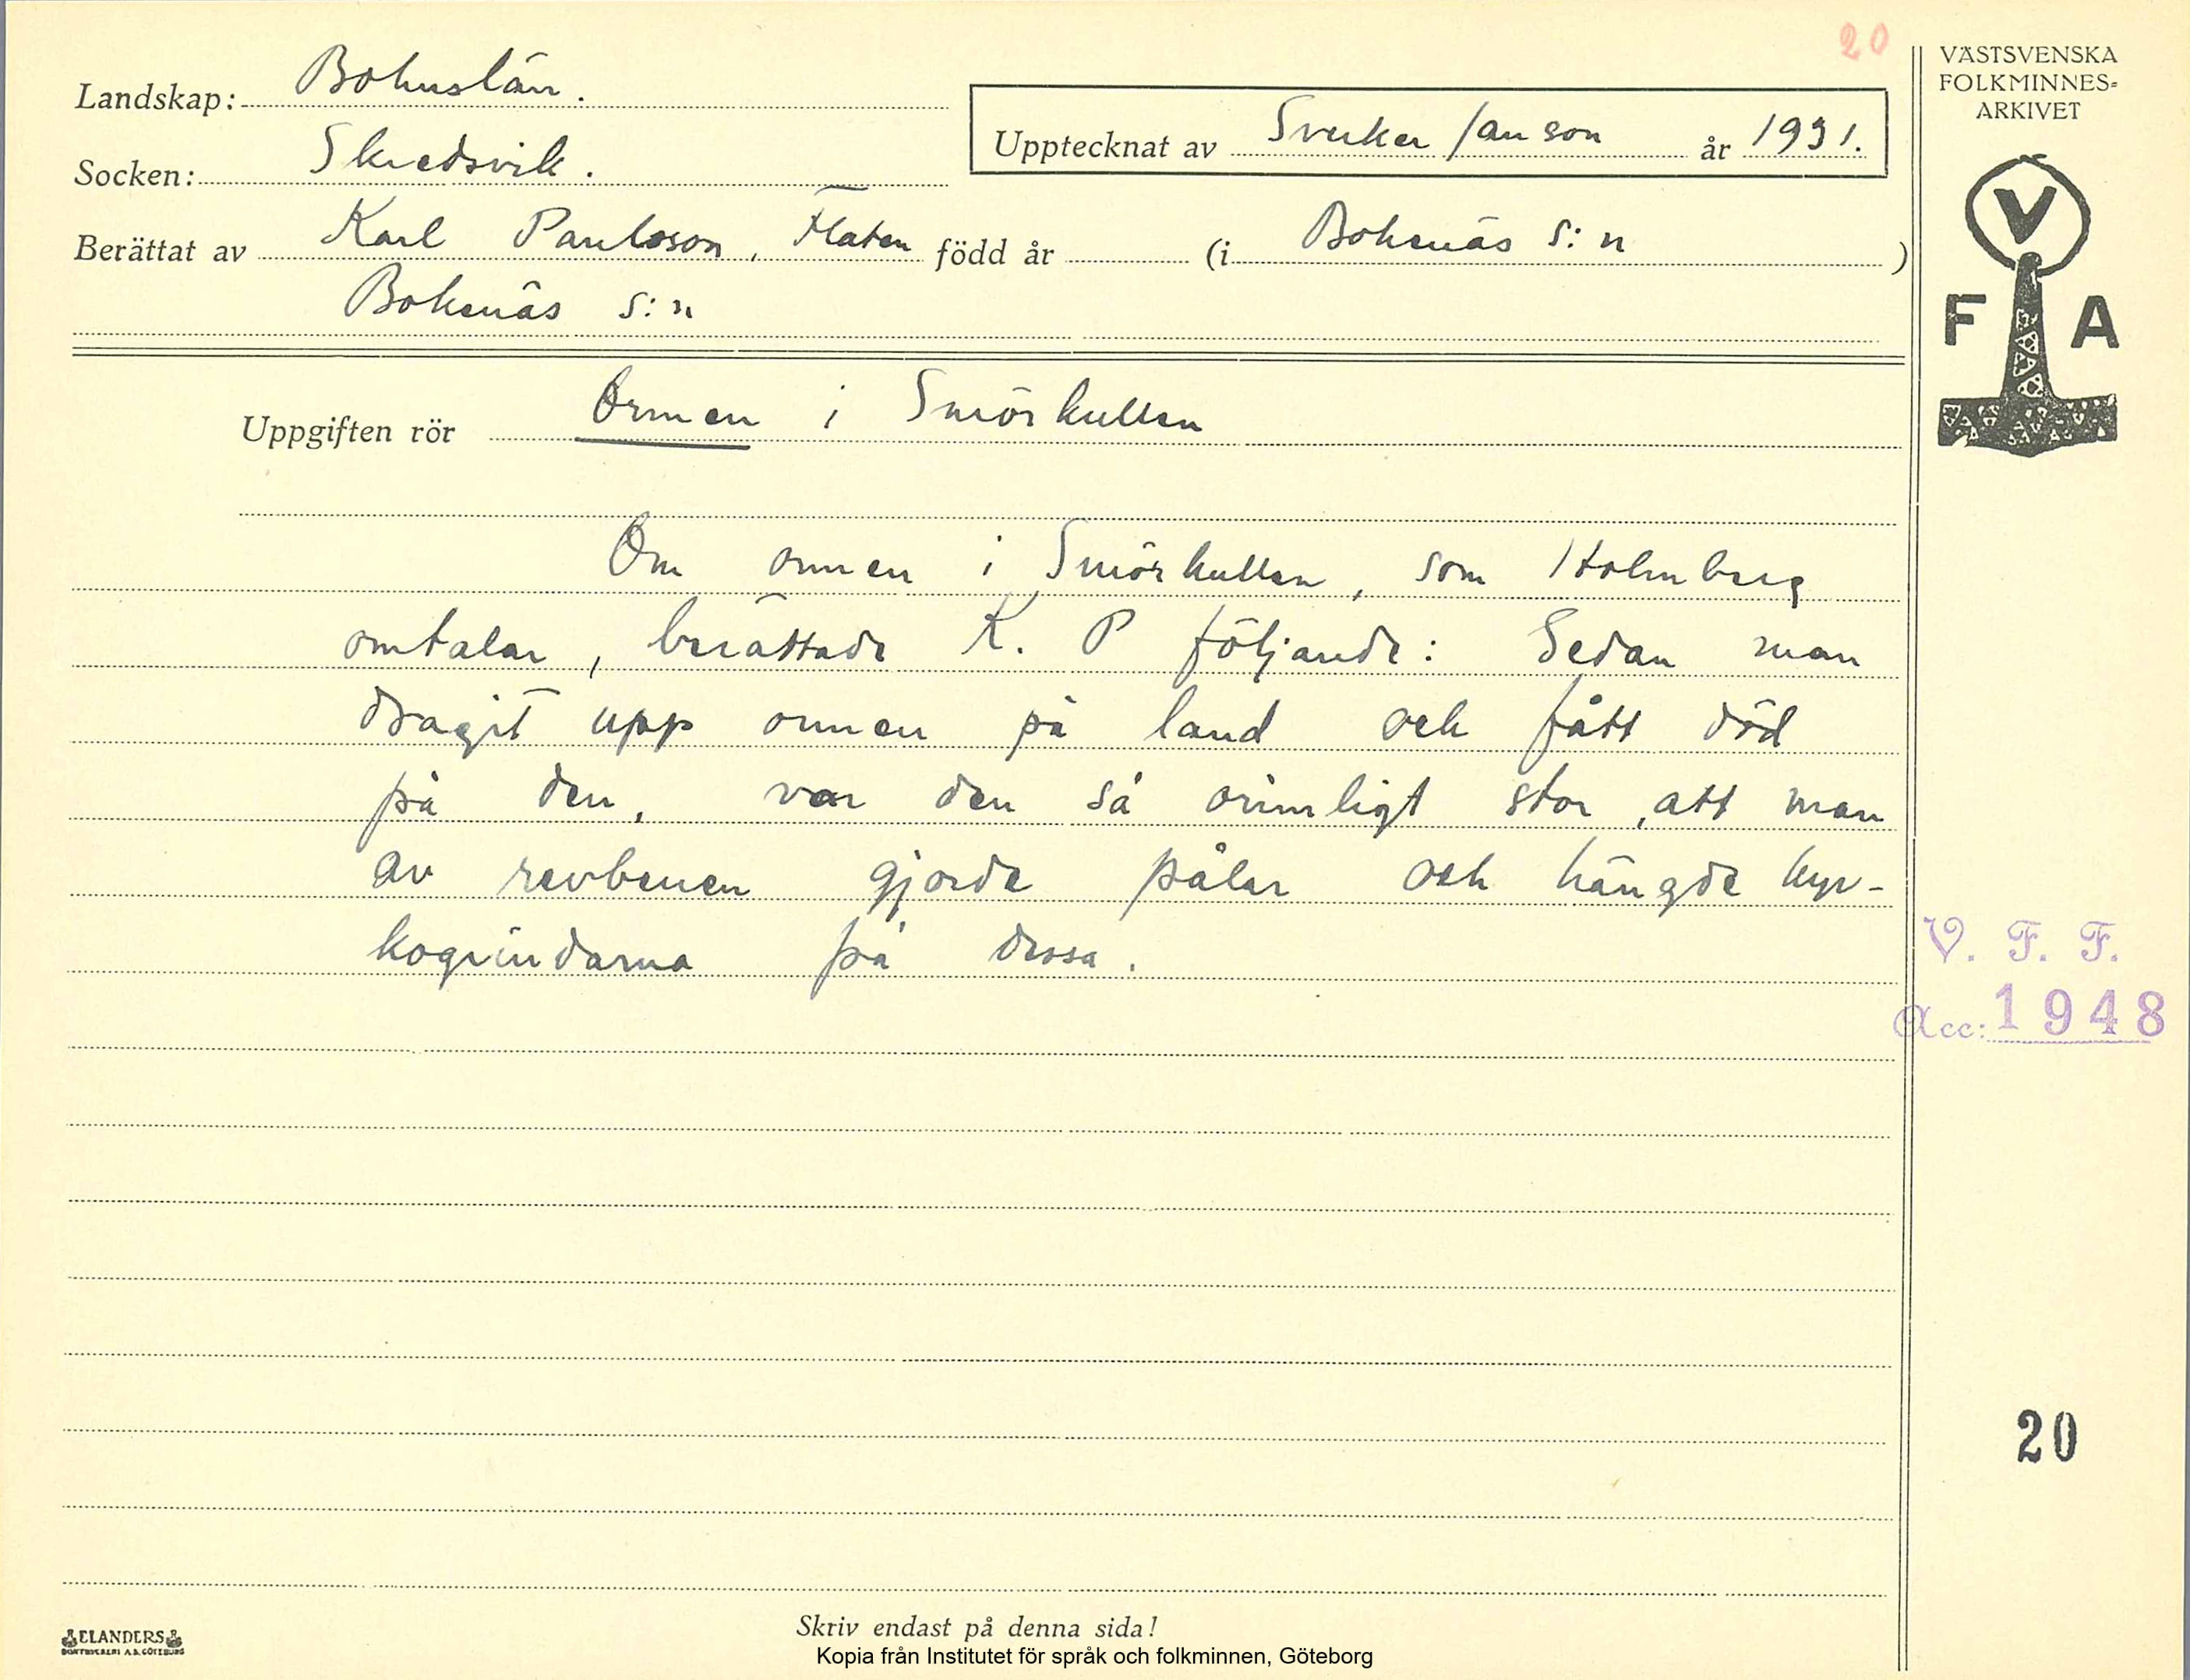 20
VÄSTSVENSKA
FOLKMINNES-
ARKIVET
V
F A
Landskap: Bohuslän.
Upptecknat av Sverker Janson år 1931.
Socken: Skredsvik.
Berättat av Karl Paulsson, Flaten född år (i Bokenäs s:n )
Bokenäs s:n
Uppgiften rör Ormen i Smörkullen
Om ormen i Smörkullen, som Holmberg
omtalar, berättade K. P följande: Sedan man
dragit upp ormen på land och fått död
på den, var den så orimligt stor, att man
av revbenen gjorde pålar och hängde kyr-
kogrindarna på dessa.
V. F. F.
Acc: 1948
20
ELANDERS
BOKTRYCKERI A.B. GÖTEBORG
Skriv endast på denna sida!
Kopia från Institutet för språk och folkminnen, Göteborg